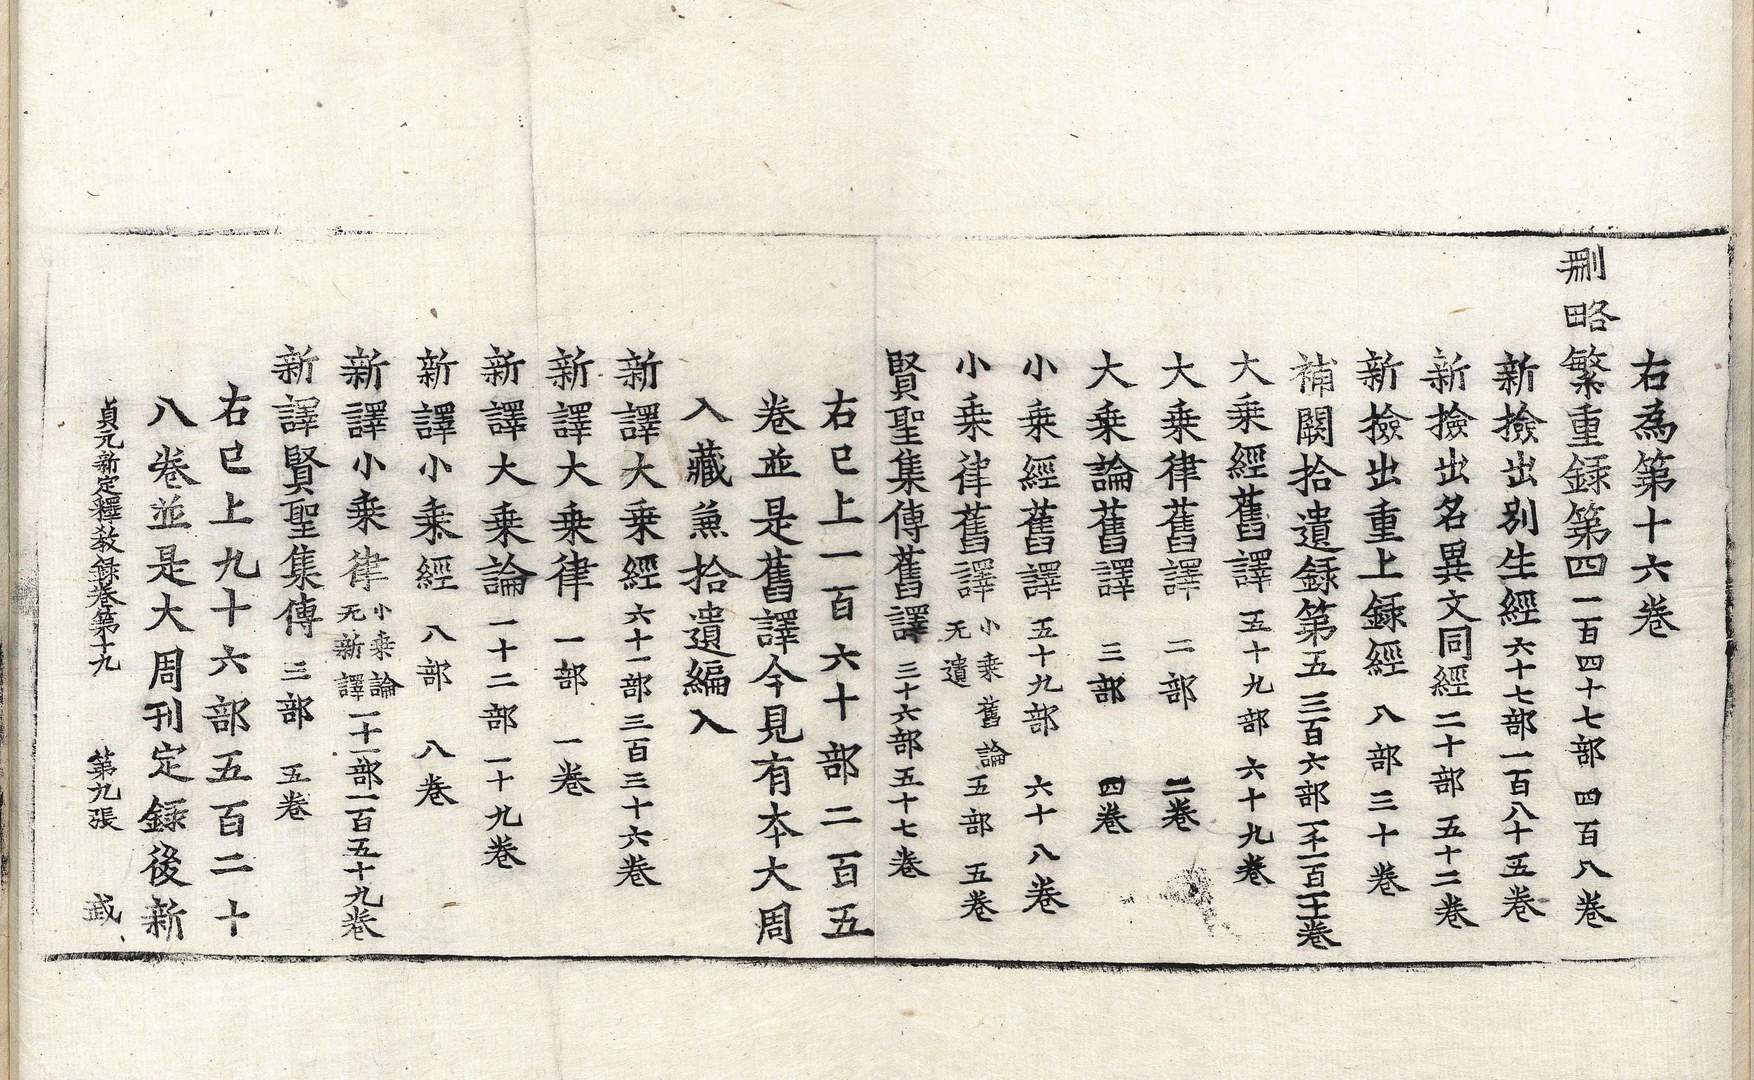 右為第十六卷
刪略繁重録第四 一百四十七部 四百八卷
新撿出别生經 六十七部一百八十五卷
新撿出名異文同經 二十部 五十二卷
新撿出重上録經 八部 三十卷
補闕拾遺録第五 三百六部一千一百一十一卷
大乗經舊譯 五十九部 六十九卷
大乗律舊譯 二部 二卷
大乗論舊譯 三部 四卷
小乗經舊譯 五十九部 六十八卷
小乗律舊譯 小乗舊論无遺 五部 五卷
賢聖集傳舊譯 三十六部五十七卷
右已上一百六十部二百五
卷並是舊譯今見有夲大周
入藏兼拾遺編入
新譯大乗經 六十一部三百三十六卷
新譯大乗律 一部 一卷
新譯大乗論 一十二部 一十九卷
新譯小乗經 八部 八卷
新譯小乗律 小乗論无新譯 一十一部一百五十九卷
新譯賢聖集傳 三部 五卷
右已上九十六部五百二十
八卷並是大周刊定録後新
貞元新定釋教録卷第十九 第九張